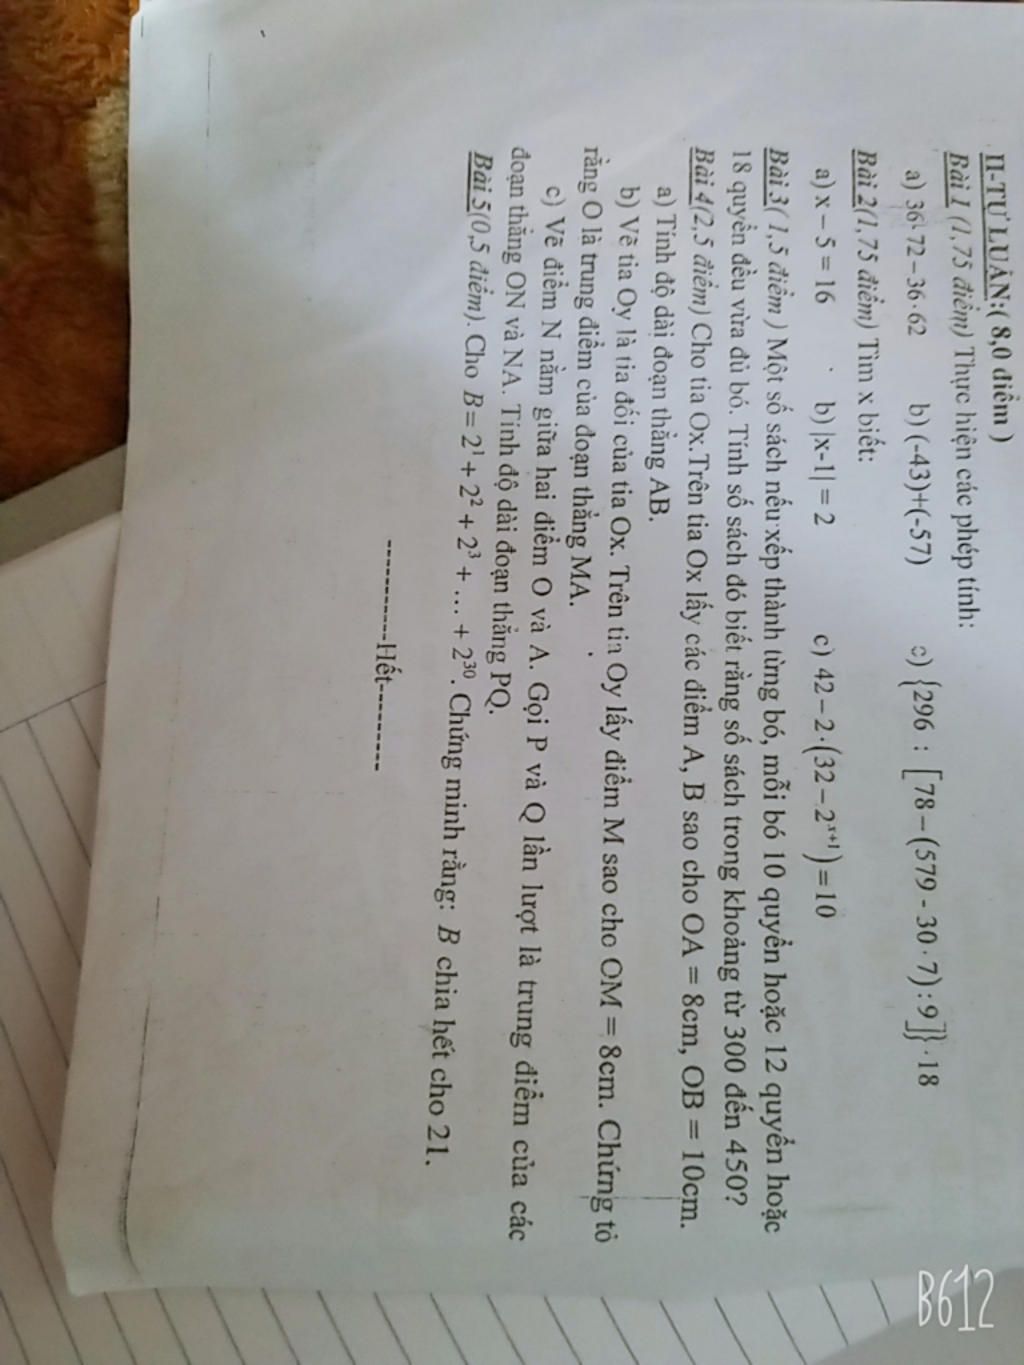 II-TỰ LUẬN:( 8,0 điểm )
Bài 1 (1,75 điểm) Thực hiện các phép tính:
a) 36·72 – 36·62 b) (-43)+(-57) c) {296 : [78 – (579 - 30·7) : 9]}·18
Bài 2(1,75 điểm) Tìm x biết:
a) x – 5 = 16 b) |x-1| = 2 c) 42 – 2·(32 – 2ˣ⁺¹) = 10
Bài 3( 1,5 điểm ) Một số sách nếu xếp thành từng bó, mỗi bó 10 quyển hoặc 12 quyển hoặc
18 quyển đều vừa đủ bó. Tính số sách đó biết rằng số sách trong khoảng từ 300 đến 450?
Bài 4(2,5 điểm) Cho tia Ox.Trên tia Ox lấy các điểm A, B sao cho OA = 8cm, OB = 10cm.
a) Tính độ dài đoạn thẳng AB.
b) Vẽ tia Oy là tia đối của tia Ox. Trên tia Oy lấy điểm M sao cho OM = 8cm. Chứng tỏ
rằng O là trung điểm của đoạn thẳng MA.
c) Vẽ điểm N nằm giữa hai điểm O và A. Gọi P và Q lần lượt là trung điểm của các
đoạn thẳng ON và NA. Tính độ dài đoạn thẳng PQ.
Bài 5(0,5 điểm). Cho B = 2¹ + 2² + 2³ + ... + 2³⁰. Chứng minh rằng: B chia hết cho 21.
----------Hết---------
B612